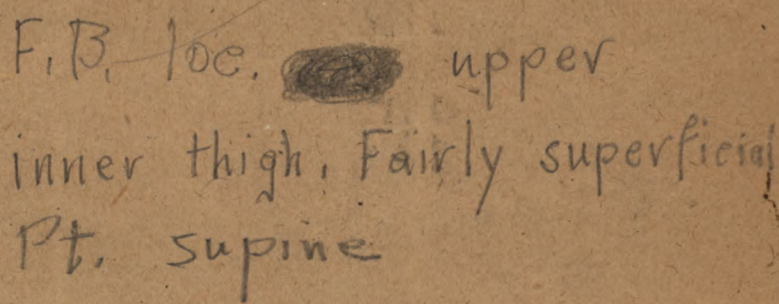 F.B. loc. upper
inner thigh. Fairly superficial
Pt. supine